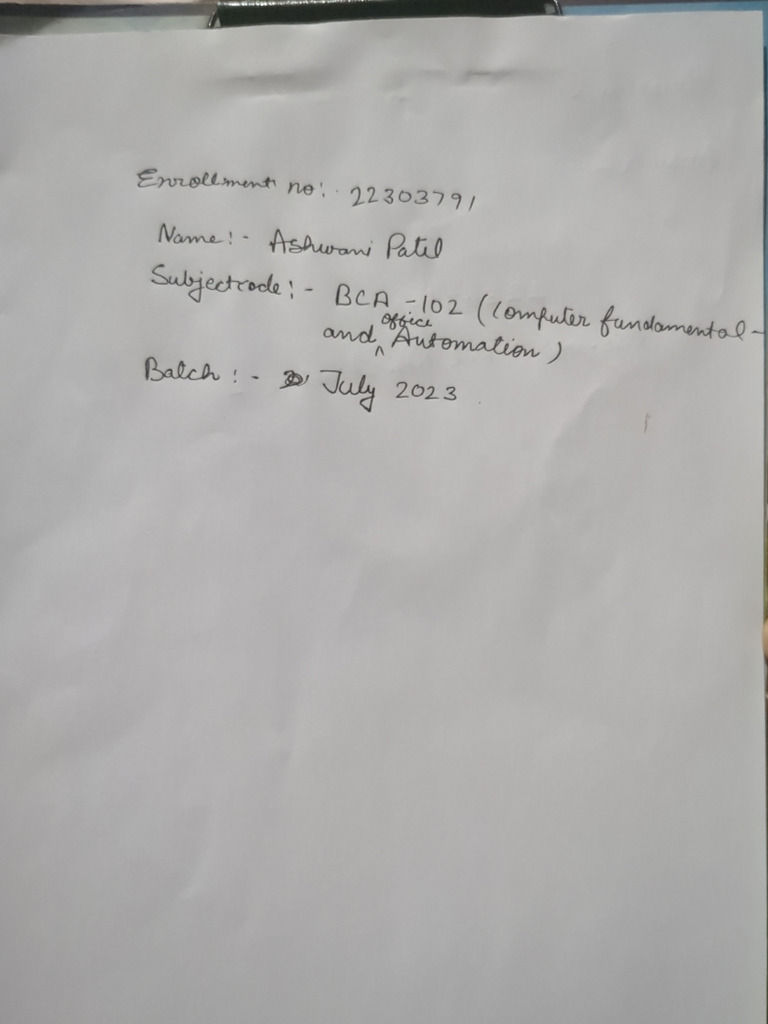 Enrollment no:- 22303791
Name:- Ashwani Patel
Subjectcode:- BCA -102 (Computer fundamental-
and office Automation)
Batch:- July 2023